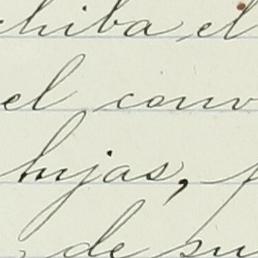 chiba el
el conv
hijas,
de su